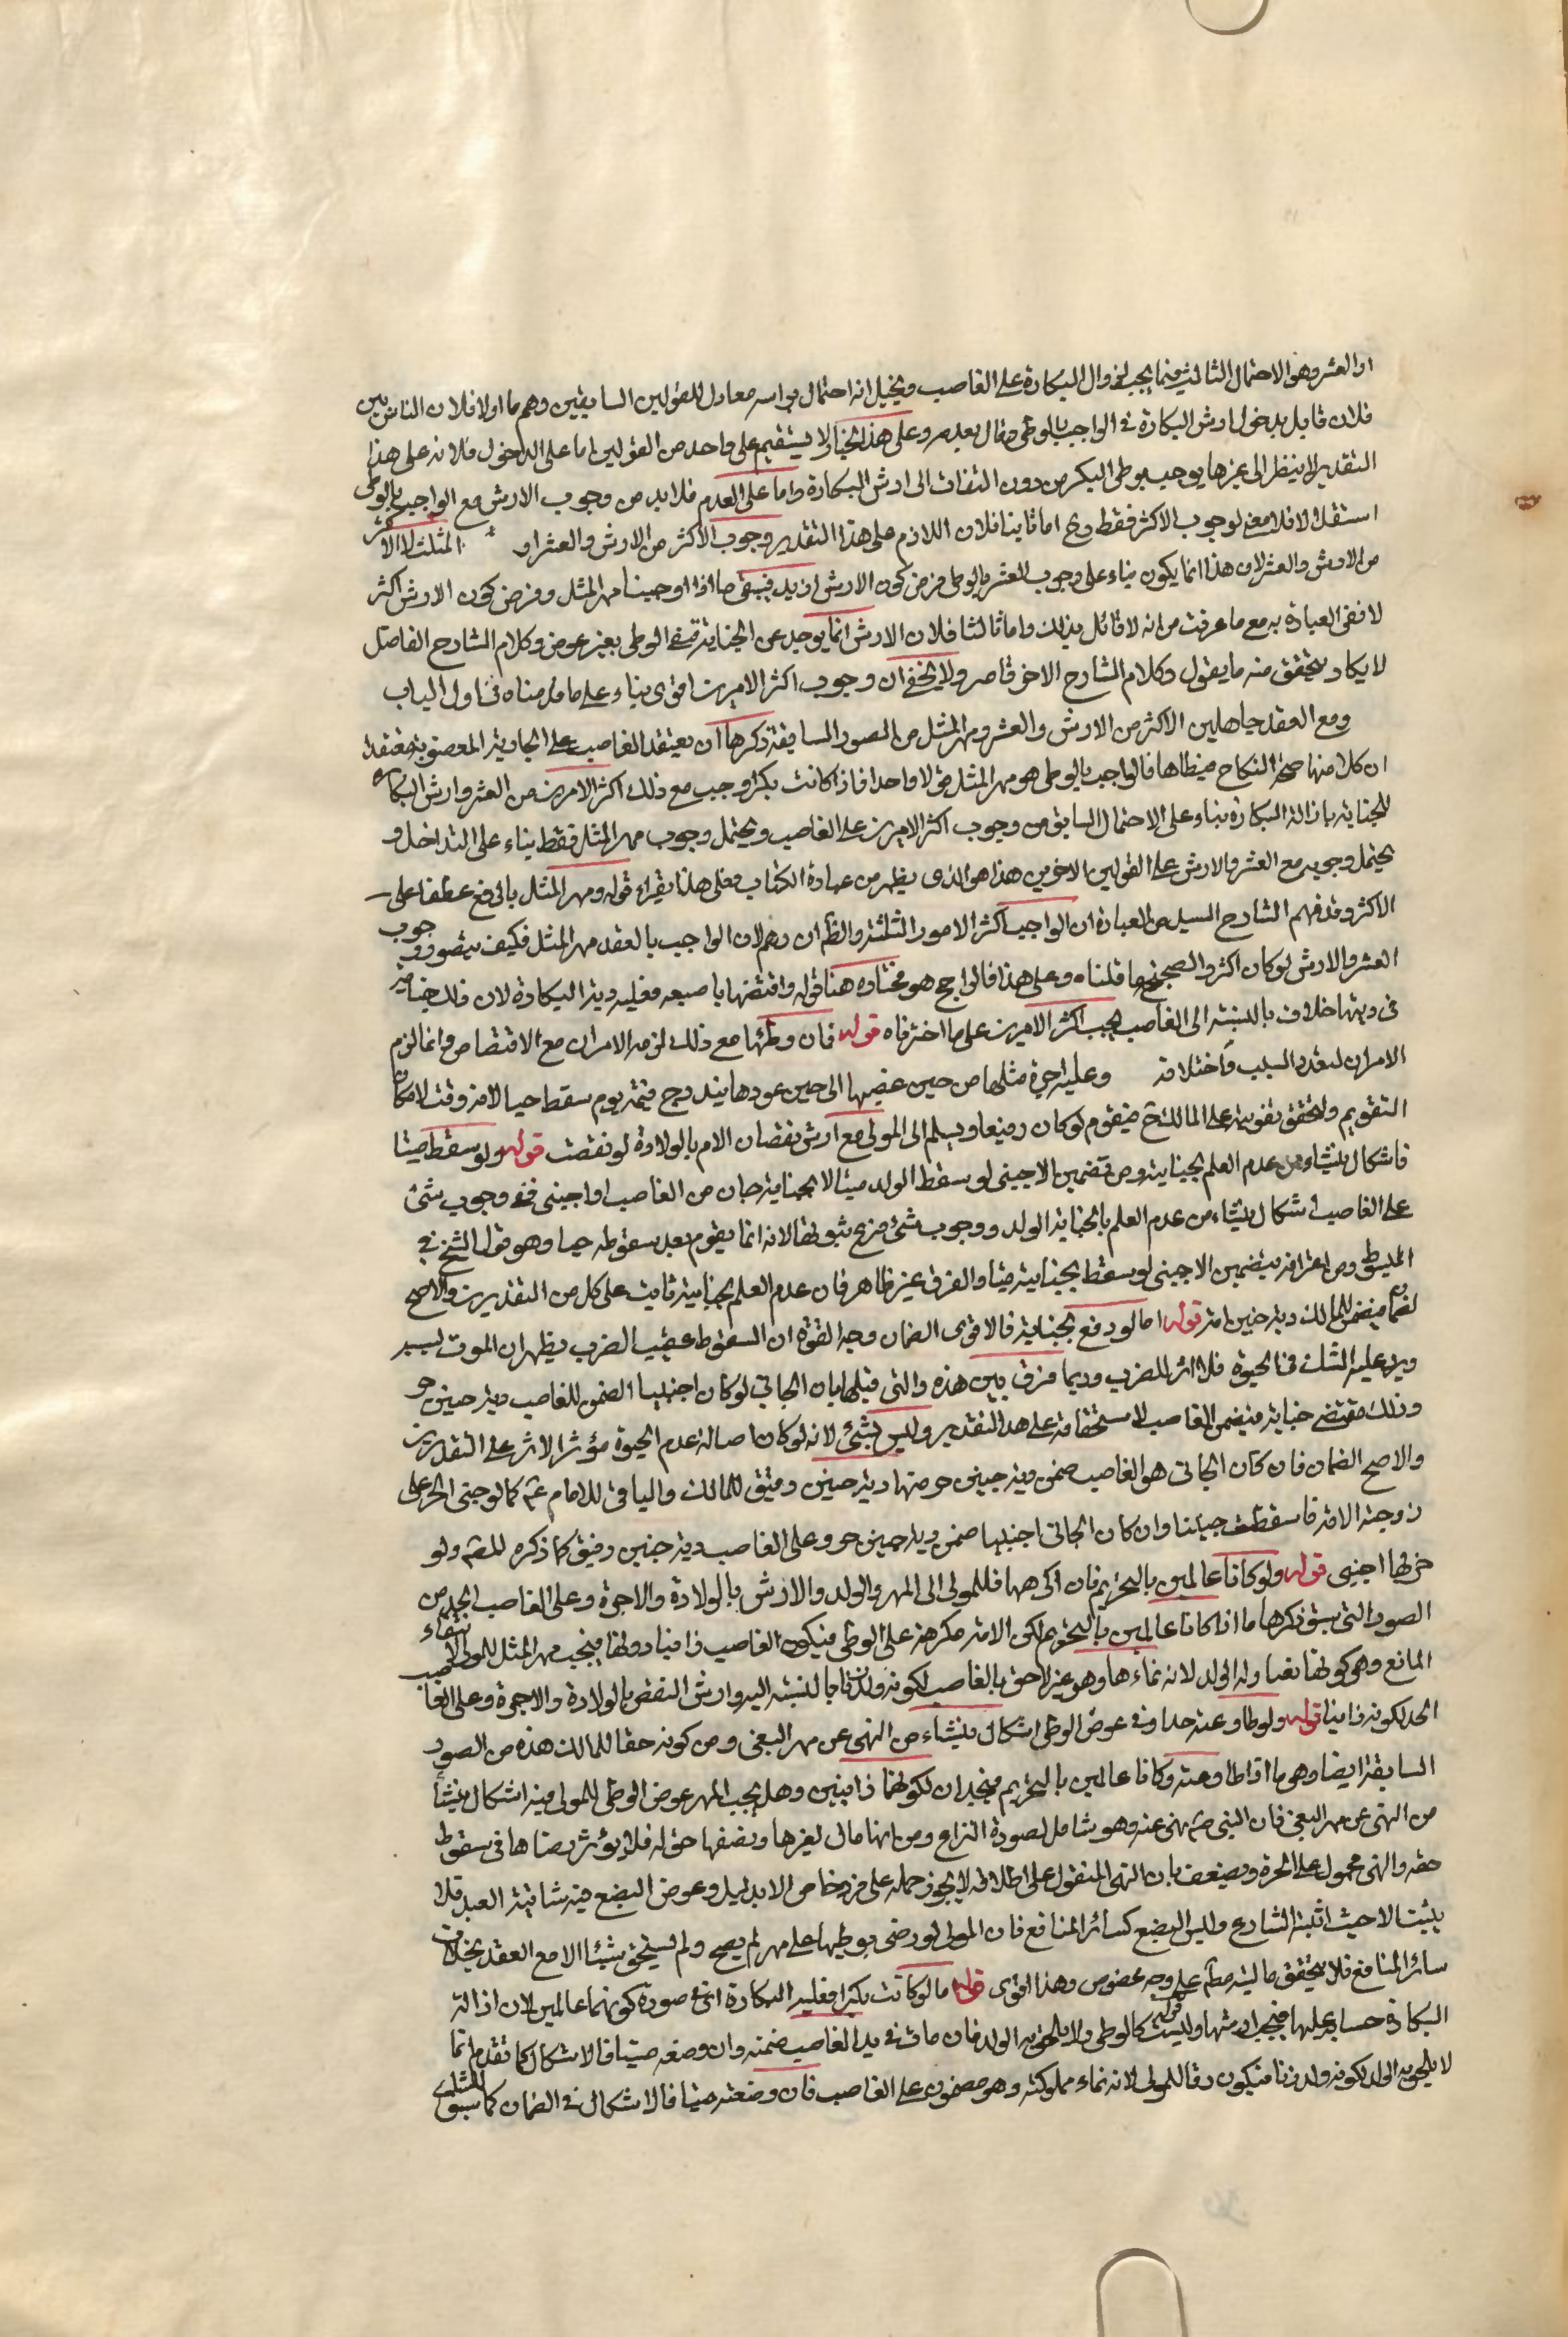 او العشر وهو الاحتمال الثالث فيما يجب لزوال البكارة على الغاصب ويخيل انه احتمال براسه معادل للقولين السابقين وهم ما اولا فلان الناس بين
فلان قايل بدخول ارش البكارة في الواجب بالوطي وقال بعدمه وعلى هذا الخيال لا يستقيم على واحد من القولين اما على الدخول فلانه على هذا
التقدير لا ينظر الى غيرها يوجب بوطي البكر من دون التفات الى ارش البكارة واما على العدم فلا بد من وجوب الارش مع الواجب بالوطي
استقلالا فلا معنى لوجوب الاكثر فقط وح اما ثانيا فلان اللازم على هذا التقدير وجوب الاكثر من الارش والعشر او المثل لا الاكثر
من الارش والعشر لان هذا انما يكون بناء على وجوب العشر بالوطي فرض كون الارش ازيد فيبقى ما اذا اوجبنا مهر المثل وفرض كون الارش اكثر
لا ففي العبارة به مع ما عرفت من انه لا قائل بذلك واما ثالثا فلان الارش انما يوجد عن الجناية فبقي الوطي بغير عوض وكلام الشارح الفاضل
لا يكاد يتحقق منه ما يقول وكلام الشارح الاخر قاصر ولا يخفى ان وجوب اكثر الامرين اقوى بناء على ما قدمناه في اول الباب
ومع العقد جاهلين الاكثر من الارش والعشر ومهر المثل من الصور السابقة ذكرها ان يعتقد الغاصب على الجارية المغصوبة معتقدة
ان كلا منها صحة النكاح فيطاها فالواجب بالوطي هو مهر المثل قولا واحدا فاذا كانت بكرا وجب مع ذلك اكثر الامرين من العشر وارش البكارة
للجناية بازالة البكارة بناء على الاحتمال السابق من وجوب اكثر الامرين على الغاصب ويحتمل وجوب مهر المثل فقط بناء على التداخل و
يحتمل وجوبه مع العشر والارش على القولين الاخرين هذا هو الذي يظهر من عبارة الكتاب فعلى هذا يقراء قوله ومهر المثل بالرفع عطفا على
الاكثر وقد فهم الشارح السيد من العبارة ان الواجب اكثر الامور الثلثة والظ ان وهم لان الواجب بالعقد مهر المثل فكيف يتصور وجوب
العشر والارش لو كان اكثر والصحيح ما قلناه وعلى هذا فالراجح هو مختاره هنا قوله وافتضها باصبعه فعليه دية البكارة لان ذلك جناية
في ديتها خلاف بالنسبة الى الغاصب يجب اكثر الامرين على ما اخترناه قوله فان وطئها مع ذلك لزمه الامران مع الافتضاض وانما لزم
الامران لتعدد السبب واختلافه وعليه اجرة مثلها من حين غصبها الى حين عودها يندرج قيمة يوم سقط حيا لانه وقت امكان
التقويم ولتحقق تفويته على المالك ح فيقوم لو كان رضيعا ويسلم الى المولى مع ارش نقصان الام بالولادة لو نقصت قوله ولو سقط ميتا
فاشكال ينشاء من عدم العلم بحياته ومن تضمين الاجنبي لو سقط الولد ميتا لا بجناية جان من الغاصب او اجنبي ففي وجوب شئ
على الغاصب اشكال ينشاء من عدم العلم بالحياة الولد ووجوب شئ فرع ثبوتها لانه انما يقوم بعد سقوطه حيا وهو قول الشيخ في
المبسوط ومن اعترافه بتضمين الاجنبي لو سقط بجنايته ميتا والفرق غير ظاهر فان عدم العلم بالحياة ثابت على كل من التقديرين والاصح
لضمان فيضمن للمالك دية جنين امة قوله اما لو دفع بجناية فالاقوى الضمان وجه القوة ان السقوط عقيب الضرب يظهر ان الموت بسببه
ويرد عليه الشك في الحيوة فلا اثر للضرب وربما فرق بين هذه والتي قبلها بان الجاني لو كان اجنبيا لضمن للغاصب دية جنين حر
وذلك مقتضى جنايته فيضمن الغاصب لاستحقاقه على هذا التقدير وليس بشئ لانه لو كان اصالة عدم الحيوة مؤثرا لاثر على التقديرين
والاصح الضمان فان كان الجاني هو الغاصب ضمن دية جنين حر منها دية جنين رقيق للمالك والباقي للامام ع كما لو جنى الحر على
زوجته الامة فاسقطت جنينا وان كان الجاني اجنبيا ضمن دية جنين حر وعلى الغاصب دية جنين رقيق كما ذكره المصنف ولو
ضربها اجنبي قوله ولو كانا عالمين بالتحريم فان اكرهها فللمولى المهر والولد والارش بالولادة والاجرة وعلى الغاصب الحد من
الصور التي سبق ذكرها ما اذا كانا عالمين بالتحريم لكن الامة مكرهة على الوطي فيكون الغاصب زانيا دونها فيجب مهر المثل للمولى لانتفاء
المانع وهي كونها بغيا وله الولد لانه نماءها وهو غير لاحق بالغاصب لكونه ولد زنا بالنسبة اليه وارش النقص بالولادة والاجرة وعلى الغاصب
الحد لكونه زانيا قوله ولو طاوعته حدا وفي عوض الوطي اشكال ينشاء من النهي عن مهر البغي ومن كونه حقا للمالك هذه من الصور
السابقة ايضا وهو ما اذا طاوعته وكانا عالمين بالتحريم فيحدان لكونهما زانيين وهل يجب المهر عوض الوطي للمولى فيه اشكال ينشأ
من النهي عن مهر البغي فان النبي ص نهى عنه وهو شامل لصورة النزاع ومن انها مال لغيرها وبضعها حق له فلا يؤثر رضاها في سقوط
حقه والنهي محمول على الحرة ويضعف بان النهي المنقول على اطلاقه لا يجوز حمله على فرد خاص الا بدليل وعوض البضع فيه شائبة العبد فلا
يثبت الا حيث اثبته الشارع وليس البضع كسائر المنافع فان المولى لو رضى بوطيها على مهر لم يصح ولم يستحق شيئا الا مع العقد بخلاف
سائر المنافع فلا يتحقق ماليته مط على وجه مخصوص وهذا اقوى قوله ما لو كانت بكرا فعليه البكارة اي في صورة كونهما عالمين لان ازالة
البكارة حساب عليها فيجب ارشها وليست كالوطي قوله ولا يلحق به الولد فان مات في يد الغاصب ضمنه وان وضعته ميتا فالاشكال كما تقدم انما
لا يلحق به الولد لكونه ولد زنا فيكون رقا للمولى لانه نماء مملوكته وهو مضمون على الغاصب فان وضعته ميتا فالاشكال في الضمان كما سبق